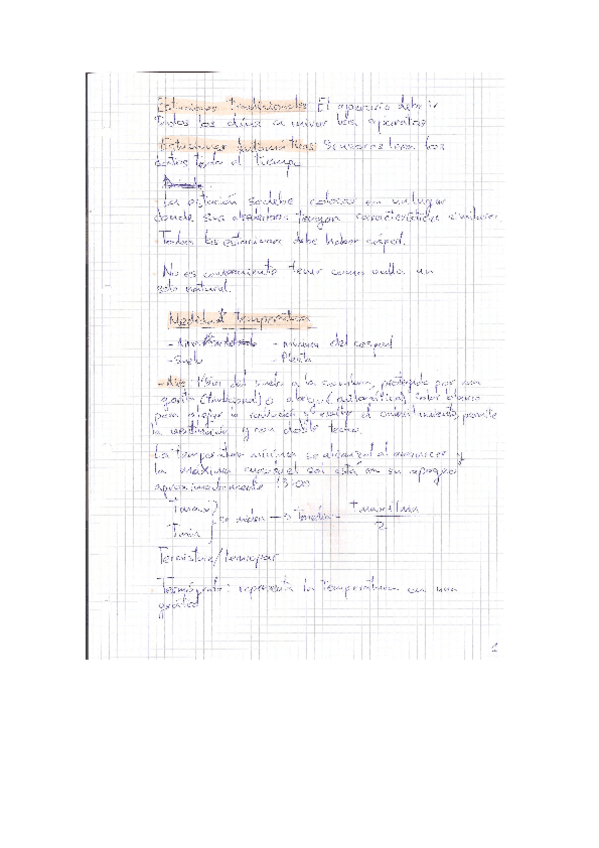 Estaciones Tradicionales: El operario debe ir
Todos los días a mirar los aparatos
Estaciones Automáticas: Sensores leen los
datos todo el tiempo
La estación se debe colocar en un lugar
donde sus alrededores tengan características similares.
Todas las estaciones debe haber césped.
No es conveniente tener como suelo un
suelo natural.
Medida Temperatura
- Aire - mínima del cesped
- Suelo - Planta
- Aire: del suelo a la sombra, protegida por una
garita (tradicional) o abrigo (automática) color blanco
para la radiación y evita el calentamiento, permite
la ventilación y con doble techo.
La temperatura mínima se alcanza al amanecer y
la máxima cuando el sol está en su apogeo
aproximadamente 13:00
Tmax }
Tmin } se miden → Tmedia = Tmax+Tmin
2
Termógrafo: representa la temperatura en una
gráfica